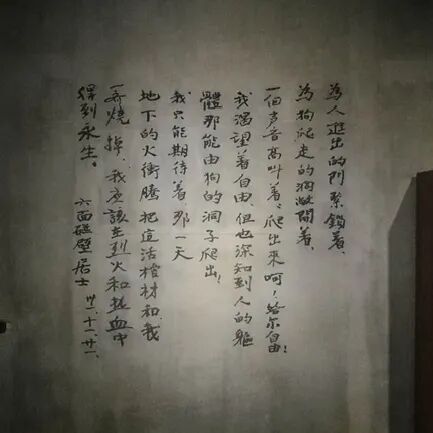 為人進出的門緊鎖着、
為狗爬走的洞敞開着、
一個声音高叫着、爬出來呵!給尔自由!
我渴望着自由、但也深知到人的軀
體那能由狗的洞子爬出!
我只能期待着那一天
地下的火衝騰把這活棺材和我
一齊燒掉、我应該在烈火和热血中
得到永生。
六面碰壁居士 卅一.十一.廿一.